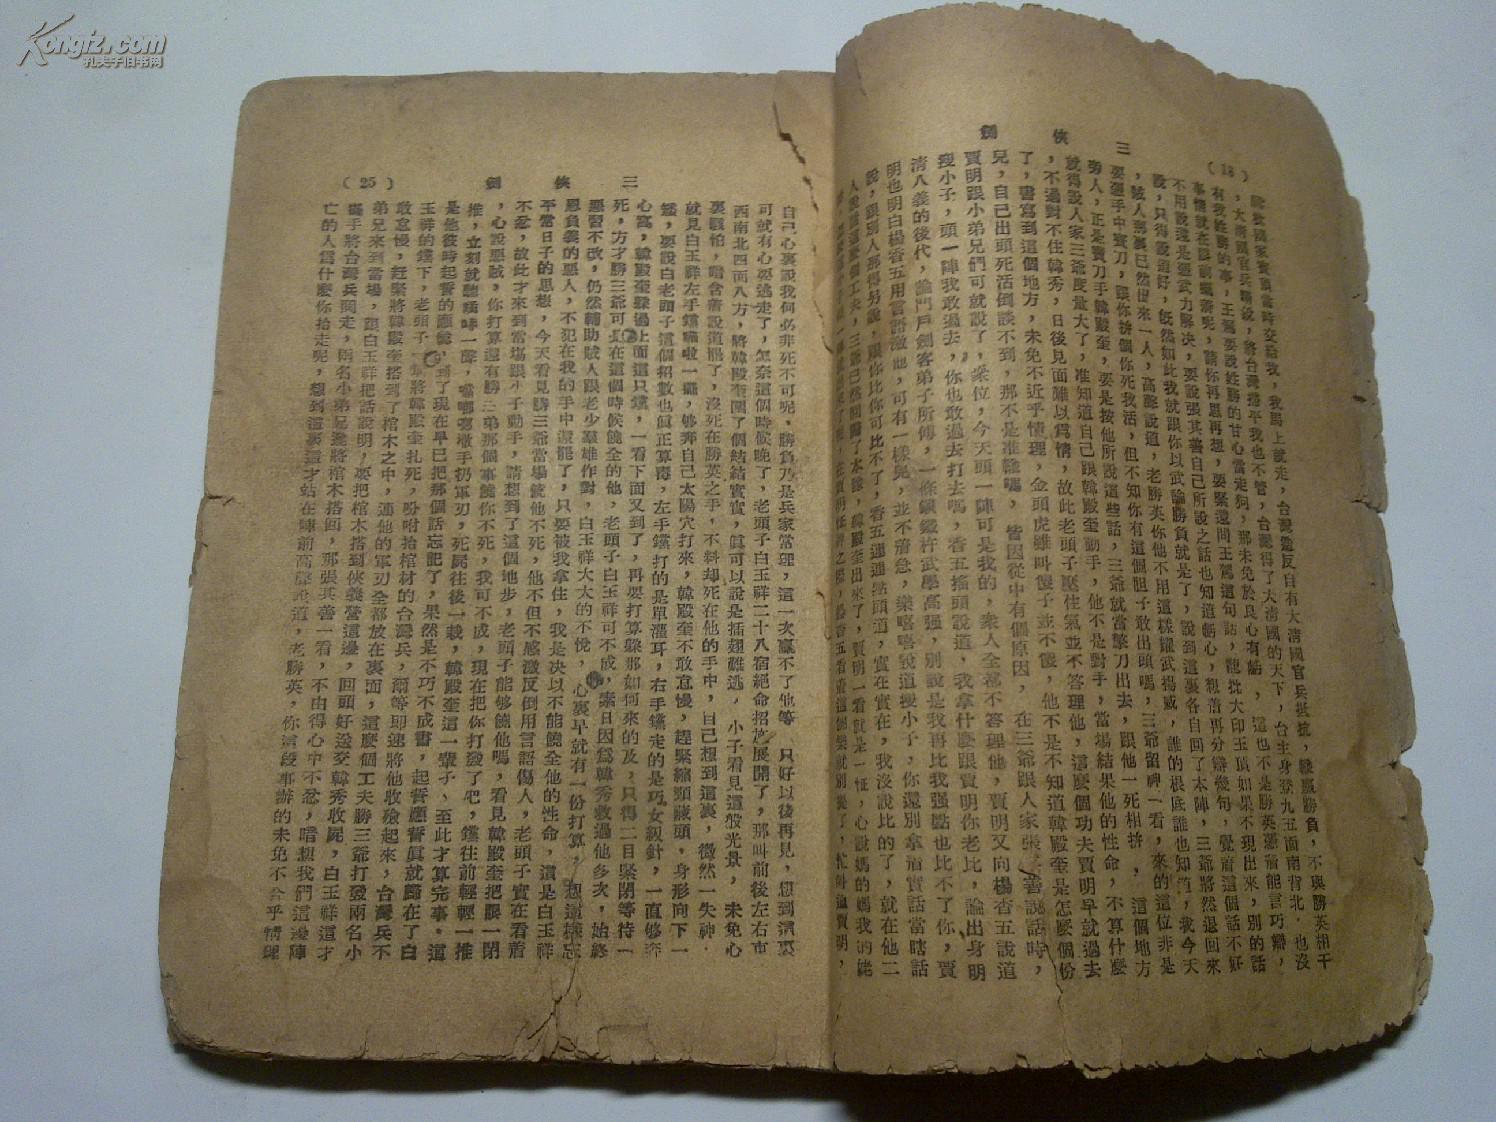 Kongfz.com
孔夫子旧书网
三俠劍
(18)
,大清國官兵精銳,將台灣掃平我也不管,台灣得了大清國的天下,台主身登九五面南背北,也沒
有我姓勝的事,王駕要說姓勝的甘心當走狗,那未免於良心有虧,這也不是勝英憑着能言巧辯,
事情就在眼前擺着呢,請你再思再想,要緊還問王駕這句話,龍批大印玉頂如果不現出來,別的話
不用說還是憑武力解決,要說張其善自己所說之話也知道虧心,想着再分辯幾句,覺着這個話不好
說,只得說道好,既然如此我就跟你以武論勝負就是了,說到這裏各自回了本陣,三爺將然退回來
,賊人那裏已然出來一人,高聲說道,老勝英你他不用這樣耀武揚威,誰的根底誰也知道,我今天
要憑手中寶刀,跟你拚個你死我活,但不知你有這個胆子敢出頭嗎,三爺留神一看,來的這位非是
旁人,正是寶刀手韓殿奎,要是按他所說這些話,三爺就當擎刀出去,跟他一死相拚,這個地方
就得說人家三爺度量大了,准知道自己跟韓殿奎動手,他不是對手,當場結果他的性命,不算什麼
,不過對不住韓秀,日後見面難以爲情,故此老頭子壓住氣並不答理他,這麼個功夫賈明早就過去
了,書寫到這個地方,未免不近乎情理,金頭虎雖叫傻子並不傻,他不是不知道韓殿奎是怎麼個份
兒,自己出頭死活倒談不到,那不是准輸嗎,皆因從中有個原因,在三爺跟人家張其善說話時,
賈明跟小弟兄們可就說了,衆位,今天頭一陣可是我的,衆人全都不答理他,賈明又向楊香五說道
瘦小子,頭一陣我敢過去,你也敢過去打去嗎,香五搖頭說道,我拿什麼跟賈明你老比,論出身明
清八義的後代,論門戶劍客弟子所傳,一條鑌鐵杵武學高强,別說是我再比我强點也比不了你,賈
明也明白楊香五用言語激他,可有一樣兒,並不着急,樂嘻嘻說道瘦小子,你還別拿着實話當瞎話
說,跟別人那得另說,跟你比你可比不了,香五連連點頭道,實在實在,我沒說比的了,就在他二
人說着這麼個工夫,三爺已然回歸了本隊,韓殿奎出來了,賈明一看就是一怔,心說媽的媽我的姥
三俠劍
(25)
自己心裏說我何必非死不可呢,勝負乃是兵家常理,這一次贏不了他等,只好以後再見,想到這裏
可就有心要逃走了,怎奈這個時候晚了,老頭子白玉祥二十八宿絕命招術展開了,那叫前後左右東
西南北四面八方,將韓殿奎圍了個結結實實,眞可以說是插翅難逃,小子看見這般光景,未免心
裏駭怕,暗含着說道罷了,沒死在勝英之手,不料却死在他的手中,自己想到這裏,微然一失神
就見白玉祥左手鑹嘣啦一擺,够奔自己太陽穴打來,韓殿奎不敢怠慢,趕緊縮頸藏頭,身形向下一
矮,要說白老頭子這個招數也眞正算毒,左手鑹打的是單灌耳,右手鑹走的是巧女紉針,一直够奔
心窩,韓殿奎躱過上面這只鑹,一看下面又到了,再要打算躱那如何來的及,只得二目緊閉等待一
死,方才勝三爺可是在這個時候饒全的他,老頭子白玉祥可不成,素日因爲韓秀敎過他多次,始終
惡習不改,仍然輔助賊人跟老少羣雄作對,白玉祥大大的不悅,心裏早就有一份打算,想這樣忘
恩負義的惡人,不犯在我的手中還罷了,只要被我拿住,我是決以不能饒全他的性命,這是白玉祥
平常日子的思想,今天看見勝三爺當場饒他不死,他不但不感激反倒用言語傷人,老頭子實在看着
不忿,故此才來到當塲跟小子動手,請想到了這個地步,老頭子能够饒他嗎,看見韓殿奎把眼一閉
,心說惡賊,你打算還有勝三弟那個事饒你不死,我可不成,現在把你打發了吧,鑹往前輕輕一推
推,立刻就聽噗哧一聲,噹啷啷墩手扔軍刃,死屍往後一栽,韓殿奎這一輩子、至此才算完事,這
是他彼時起誓的應驗,到了現在早已把那個話忘記了,果然是不巧不成書,起誓應誓眞就歸在了白
玉祥的鑹下,老頭子一鑹將韓殿奎扎死,吩咐抬棺材的台灣兵,爾等即速將他收殮起來,台灣兵不
敢怠慢,赶緊將韓殿奎搭到了棺木之中,連他的軍刃全都放在裏面,這麼個工夫勝三爺打發兩名小
弟兄來到當塲,跟白玉祥把話說明,要把棺木搭到俠義營這邊,回頭好送交韓秀收屍,白玉祥這才
擺手將台灣兵閃走,兩名小弟兄遂將棺木搭回,那張其善一看,不由得心中不忿,暗想我們這邊陣
亡的人爲什麼你抬走呢,想到這裏這才站在陣前高聲說道,老勝英,你這段事辦的未免不合乎情理